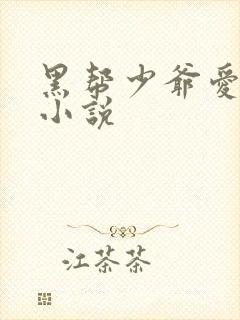 黑帮少爷愛
小説
江茶茶